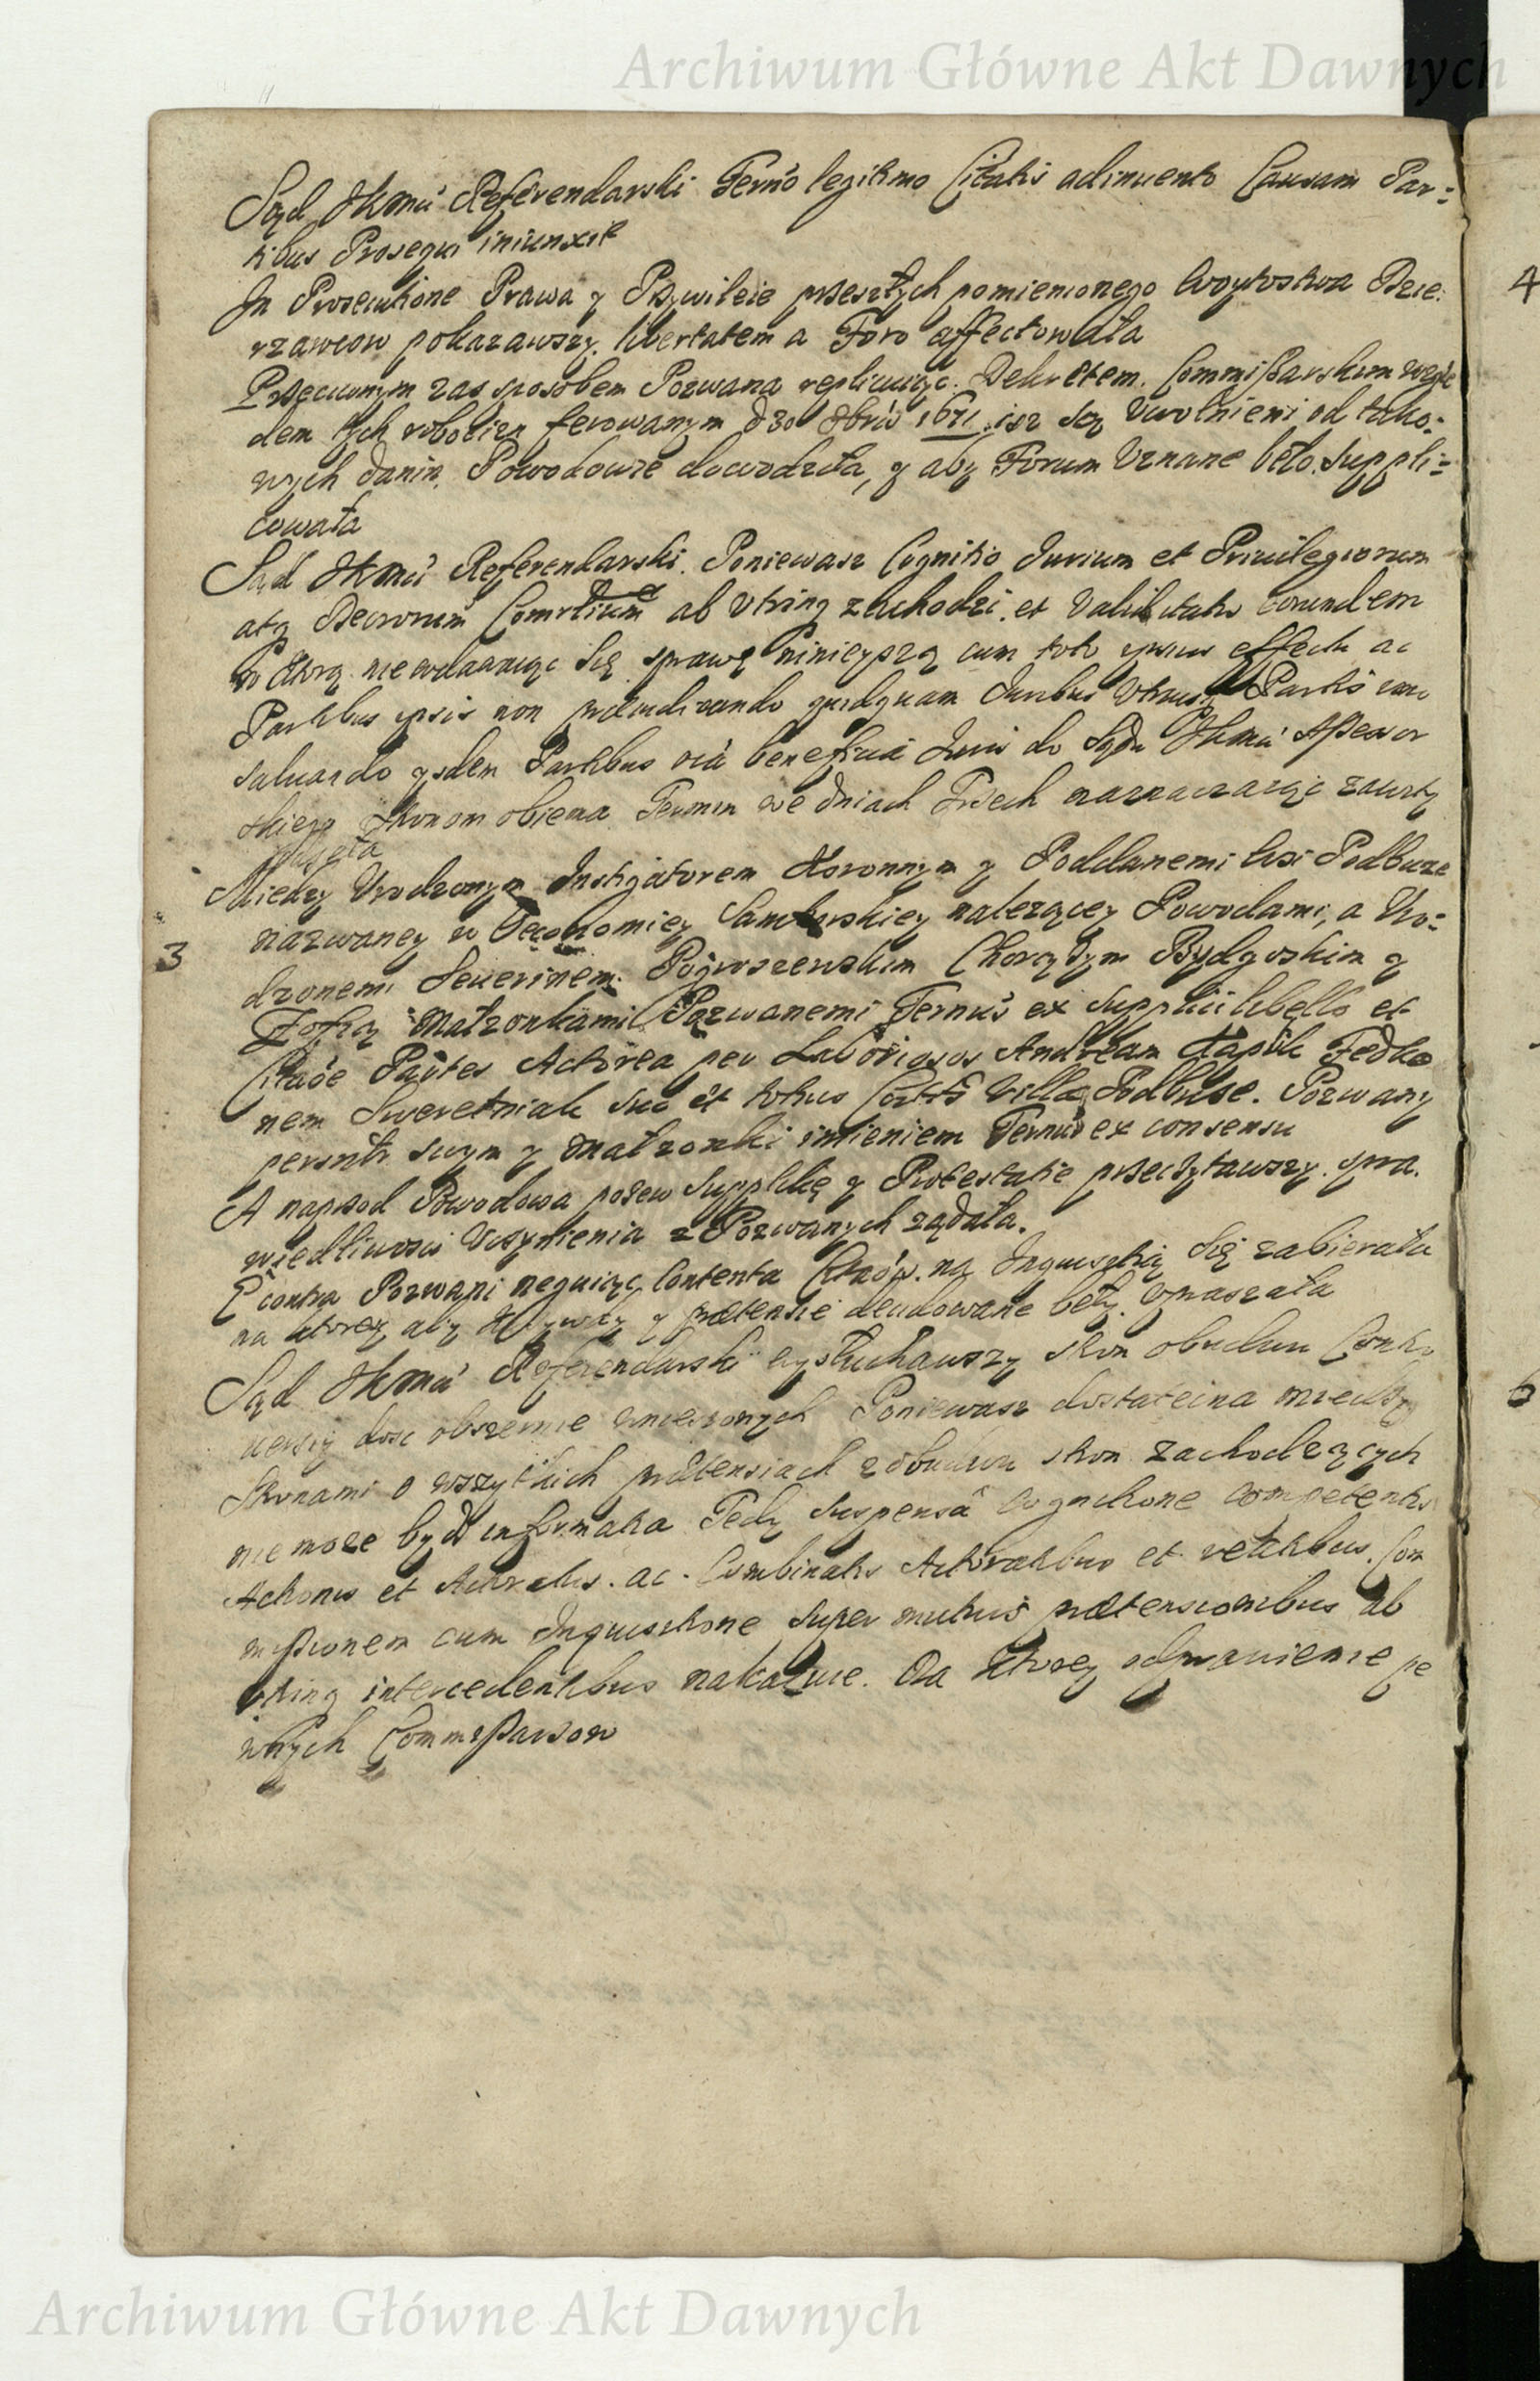 Archiwum Główne Akt Dawnych
Sąd JKMći Referendarski Termo legitimo Citatis adinvento Causam Par-
tibus Prosequi iniunxit
In Prosecutione Prawa y Przywileie przeszłych pomienionego Woytostwa Dzie-
rzawcow pokazawszy. libertatem a Foro affectowała
Przeciwnym zas sposobem Pozwana replikuiąc. Dekretem. Commissarskim wzglę
dem tych robocizn ferowanym d 30 1671. isz są Uwolnieni od tako-
wych danin. Powodowie dowodziła, y aby Forum Uznane beło. Suppli-
cowała
Sąd JKMći Referendarski. Poniewasz Cognitio Jurium et Privilegiorum
atq Decretorum ab Utrinq zachodzi. et Validitatis eorundem
w ktorą nie wdawaiąc się sprawę ninieyszą cum toto ipsius effectu ac
Partibus ipsis non praeiudicando quidquam Juribus Utriusq Partis imo
salvando ysdem Partibus beneficia Juris do Sądu JKMći Assessor
skiego stronom obiema Termin we dniach trzech naznaczaiąc zawitÿ
odsyła
3
Miedzy Urodzonym Instigatorem Koronnym y Poddanemi Wsi Podbuze
nazwaney w Oeconomiey Samborskiey nalezącey Powodami, a Uro-
dzonemi Sewerinem Pogroszewskim Chorązym Bydgoskim y
Zofią Małzonkami Pozwanemi Termus ex Supplici libello et
Citaõe Partes Actorea per Laboriosos Andream Kapik Fedko
nem Sweretniak suo et totius Coitis Villae Podbuse. Pozwany
personlr swym y Małzonki imieniem Termus ex consensu
A naprzod Powodowa pozew Supplikę y Protestatie przeczytawszy. spra-
wiedliwosci Uczynienia z Pozwanych ządała.
E contra Pozwani neguiąc Contenta Citaõis. na Inquisitią się zabierała
na ktorey aby krzywdy y praetensie deudowane beły. Upraszała
Sąd JKMći Referendarski wysłuchawszy stron obudwu Contro
uersiy dosc obszernie wniesionych Poniewasz dostateczna miedzy
Stronami o wszytkich praetensiach z obudwu stron zachodzących
nie moze bydz informatia Tedy suspensa cognitione competentis
Actionis et Actoratus. ac. Combinatis Actoratibus et reatibus. Com
missionem cum Inquisitione super mutuis praetensionibus ab
utrinq intercedentibus nakazuie. Na ktorey odprawienie pe
wnych Commissarzow
4
6
Archiwum Główne Akt Dawnych